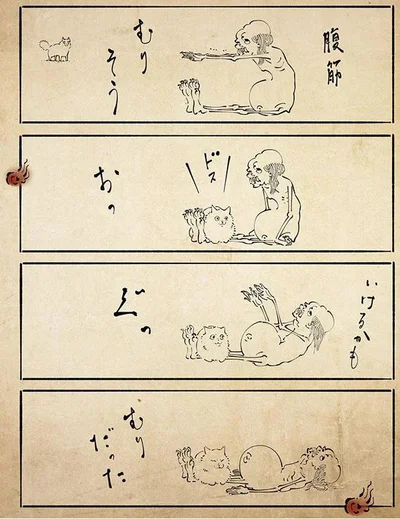 腹筋
むり
そう
おっ
ドスッ
いけるかも
ぐっ
むり
だった